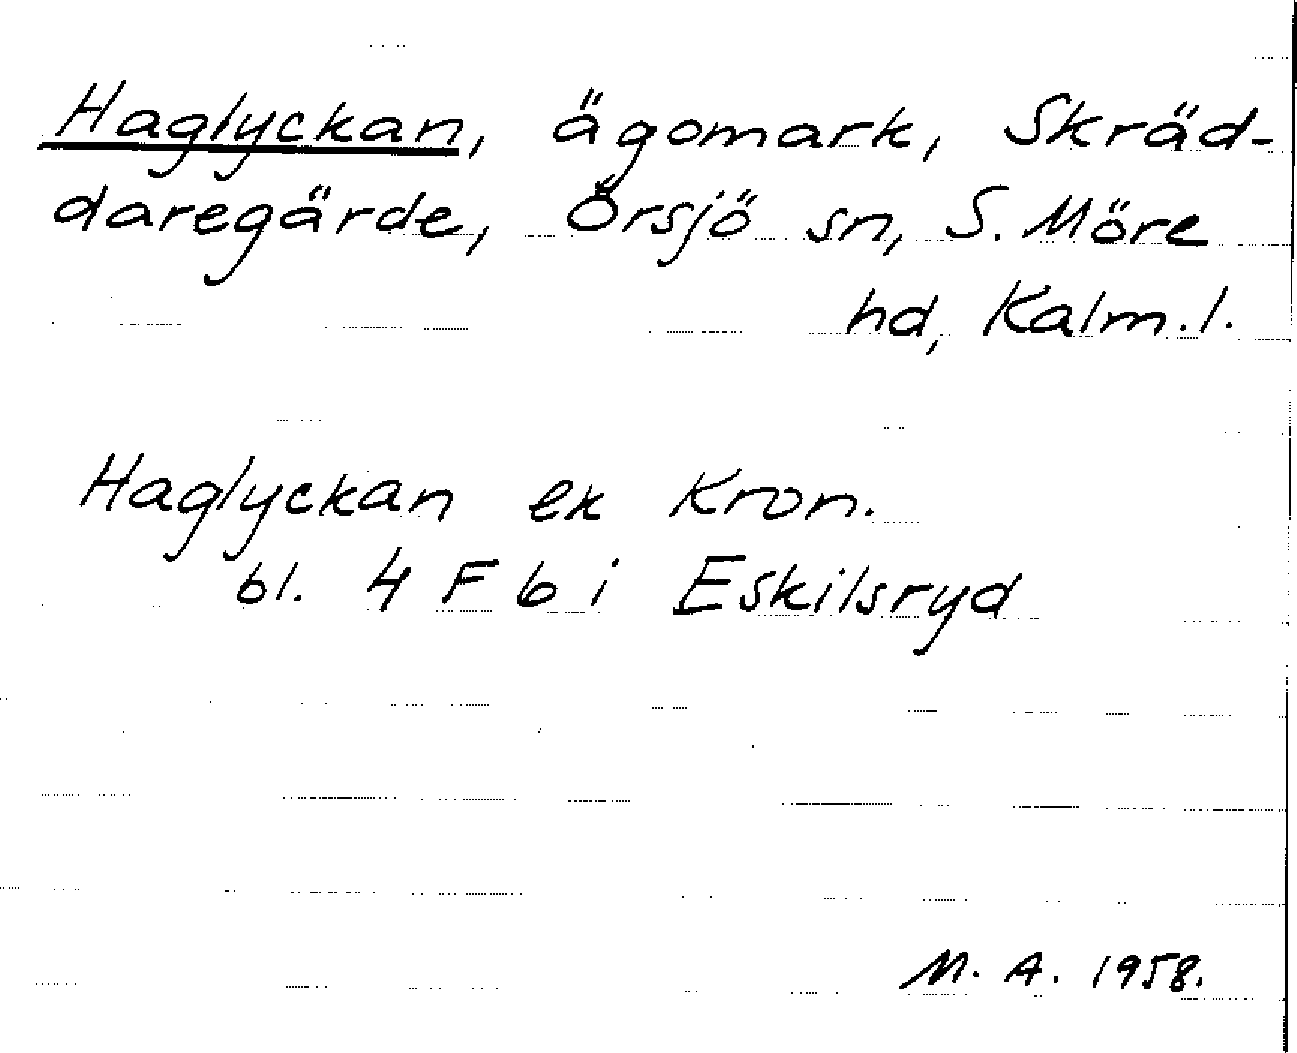 Haglyckan, ägomark, Skräd-
daregärde, Örsjö sn, S. Möre
hd, Kalm. l.
Haglyckan ek Kron.
bl. 4 F b i Eskilsryd
M. A. 1958.